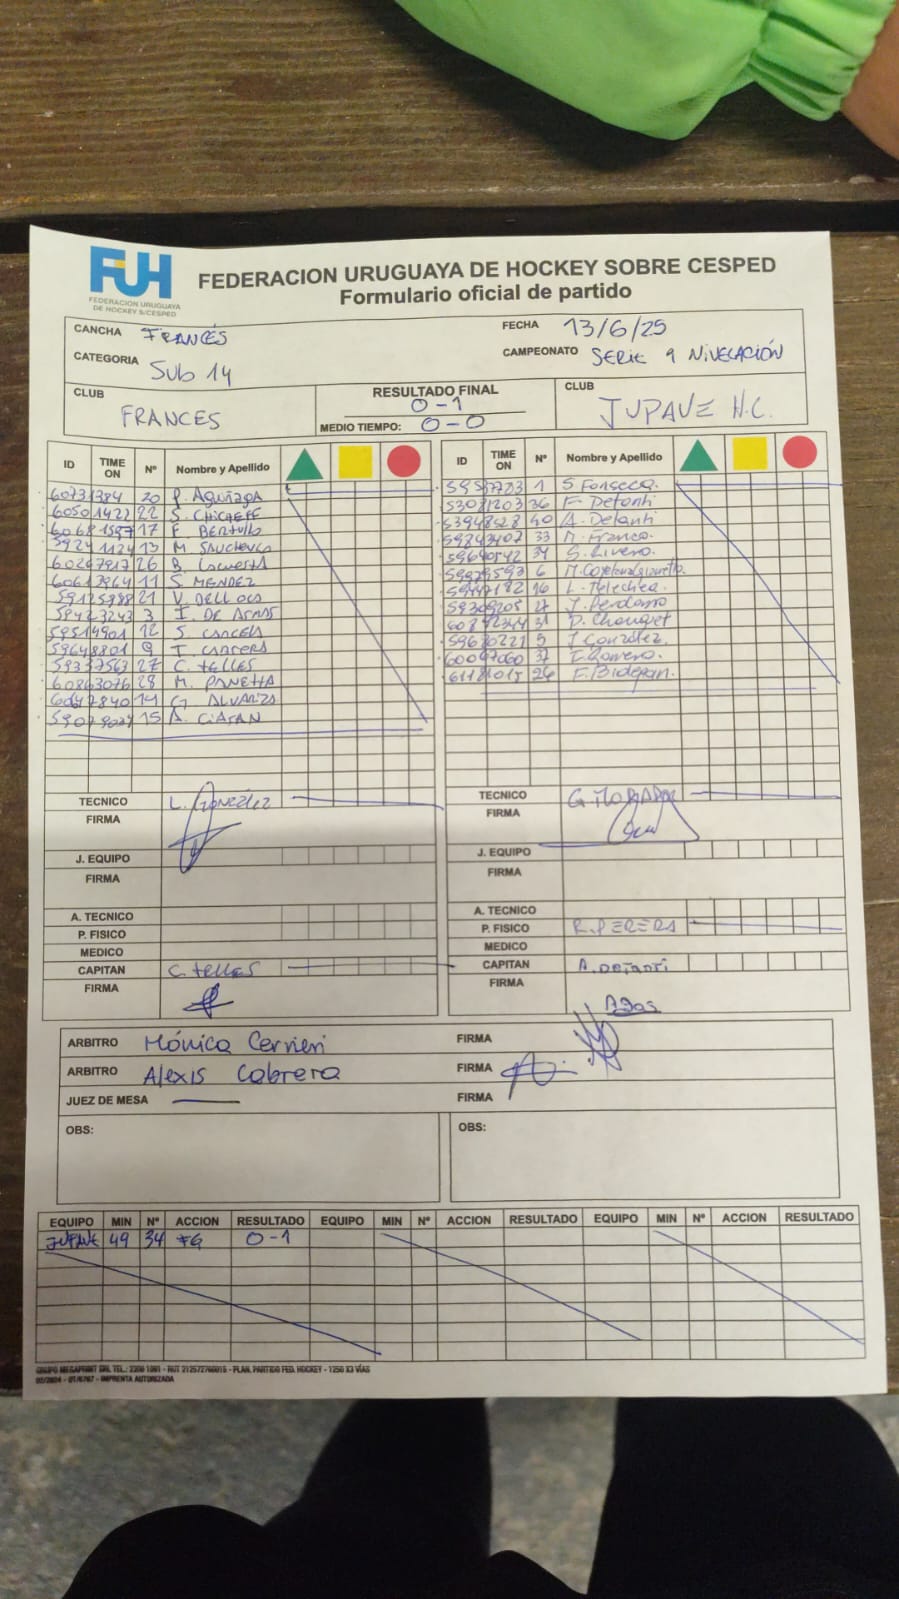 FUH
FEDERACION URUGUAYA
DE HOCKEY S/CESPED
FEDERACION URUGUAYA DE HOCKEY SOBRE CESPED
Formulario oficial de partido
CANCHA FRANCÉS
FECHA 13/6/25
CATEGORIA Sub 14
CAMPEONATO SERIE 9 NIVELACIÓN
CLUB FRANCES
RESULTADO FINAL 0-1
MEDIO TIEMPO: 0-0
CLUB JUPAVE H.C.
ID TIME ON Nº Nombre y Apellido
60731384 20 P. Aguiñaga
60501422 22 S. CHICHEFF
17 F. BERTULLO
13 M.
26 B.
11 S. MENDEZ
59125988 21 V. DELL OCA
59423243 3 I. DE ARMAS
59514901 12 S. CANCELA
59648801 9 T.
59337563 27 C. TELLES
60863076 28 M.
14 G.
15 A.
ID TIME ON Nº Nombre y Apellido
1 S. Fonseca.
53081203 36 F. Detanti
53948528 40 A. Detanti
33 M. Franco.
34 S. Rivero.
6 M.
16 L. Telechea.
J. Perdomo
31 D. Chouquet
59670221 5 J. González.
60097060 37 T. Romero.
61181015 26 F.
TECNICO L. González
FIRMA
J. EQUIPO
FIRMA
A. TECNICO
P. FISICO
MEDICO
CAPITAN C. TELLES
FIRMA
TECNICO
FIRMA
J. EQUIPO
FIRMA
A. TECNICO
P. FISICO R. PERERA
MEDICO
CAPITAN A. DETANTI
FIRMA
ARBITRO Mónica Cerrieri
FIRMA
ARBITRO Alexis Cabrera
FIRMA
JUEZ DE MESA
FIRMA
OBS:
OBS:
EQUIPO MIN Nº ACCION RESULTADO EQUIPO MIN Nº ACCION RESULTADO EQUIPO MIN Nº ACCION RESULTADO
JUPAVE 49 34 FG 0-1
GRUPO MEGAPRINT SRL TEL.: 2200 1091 - RUT 212572760015 - PLAN. PARTIDO FED. HOCKEY - 1250 X3 VÍAS
IMPRENTA AUTORIZADA